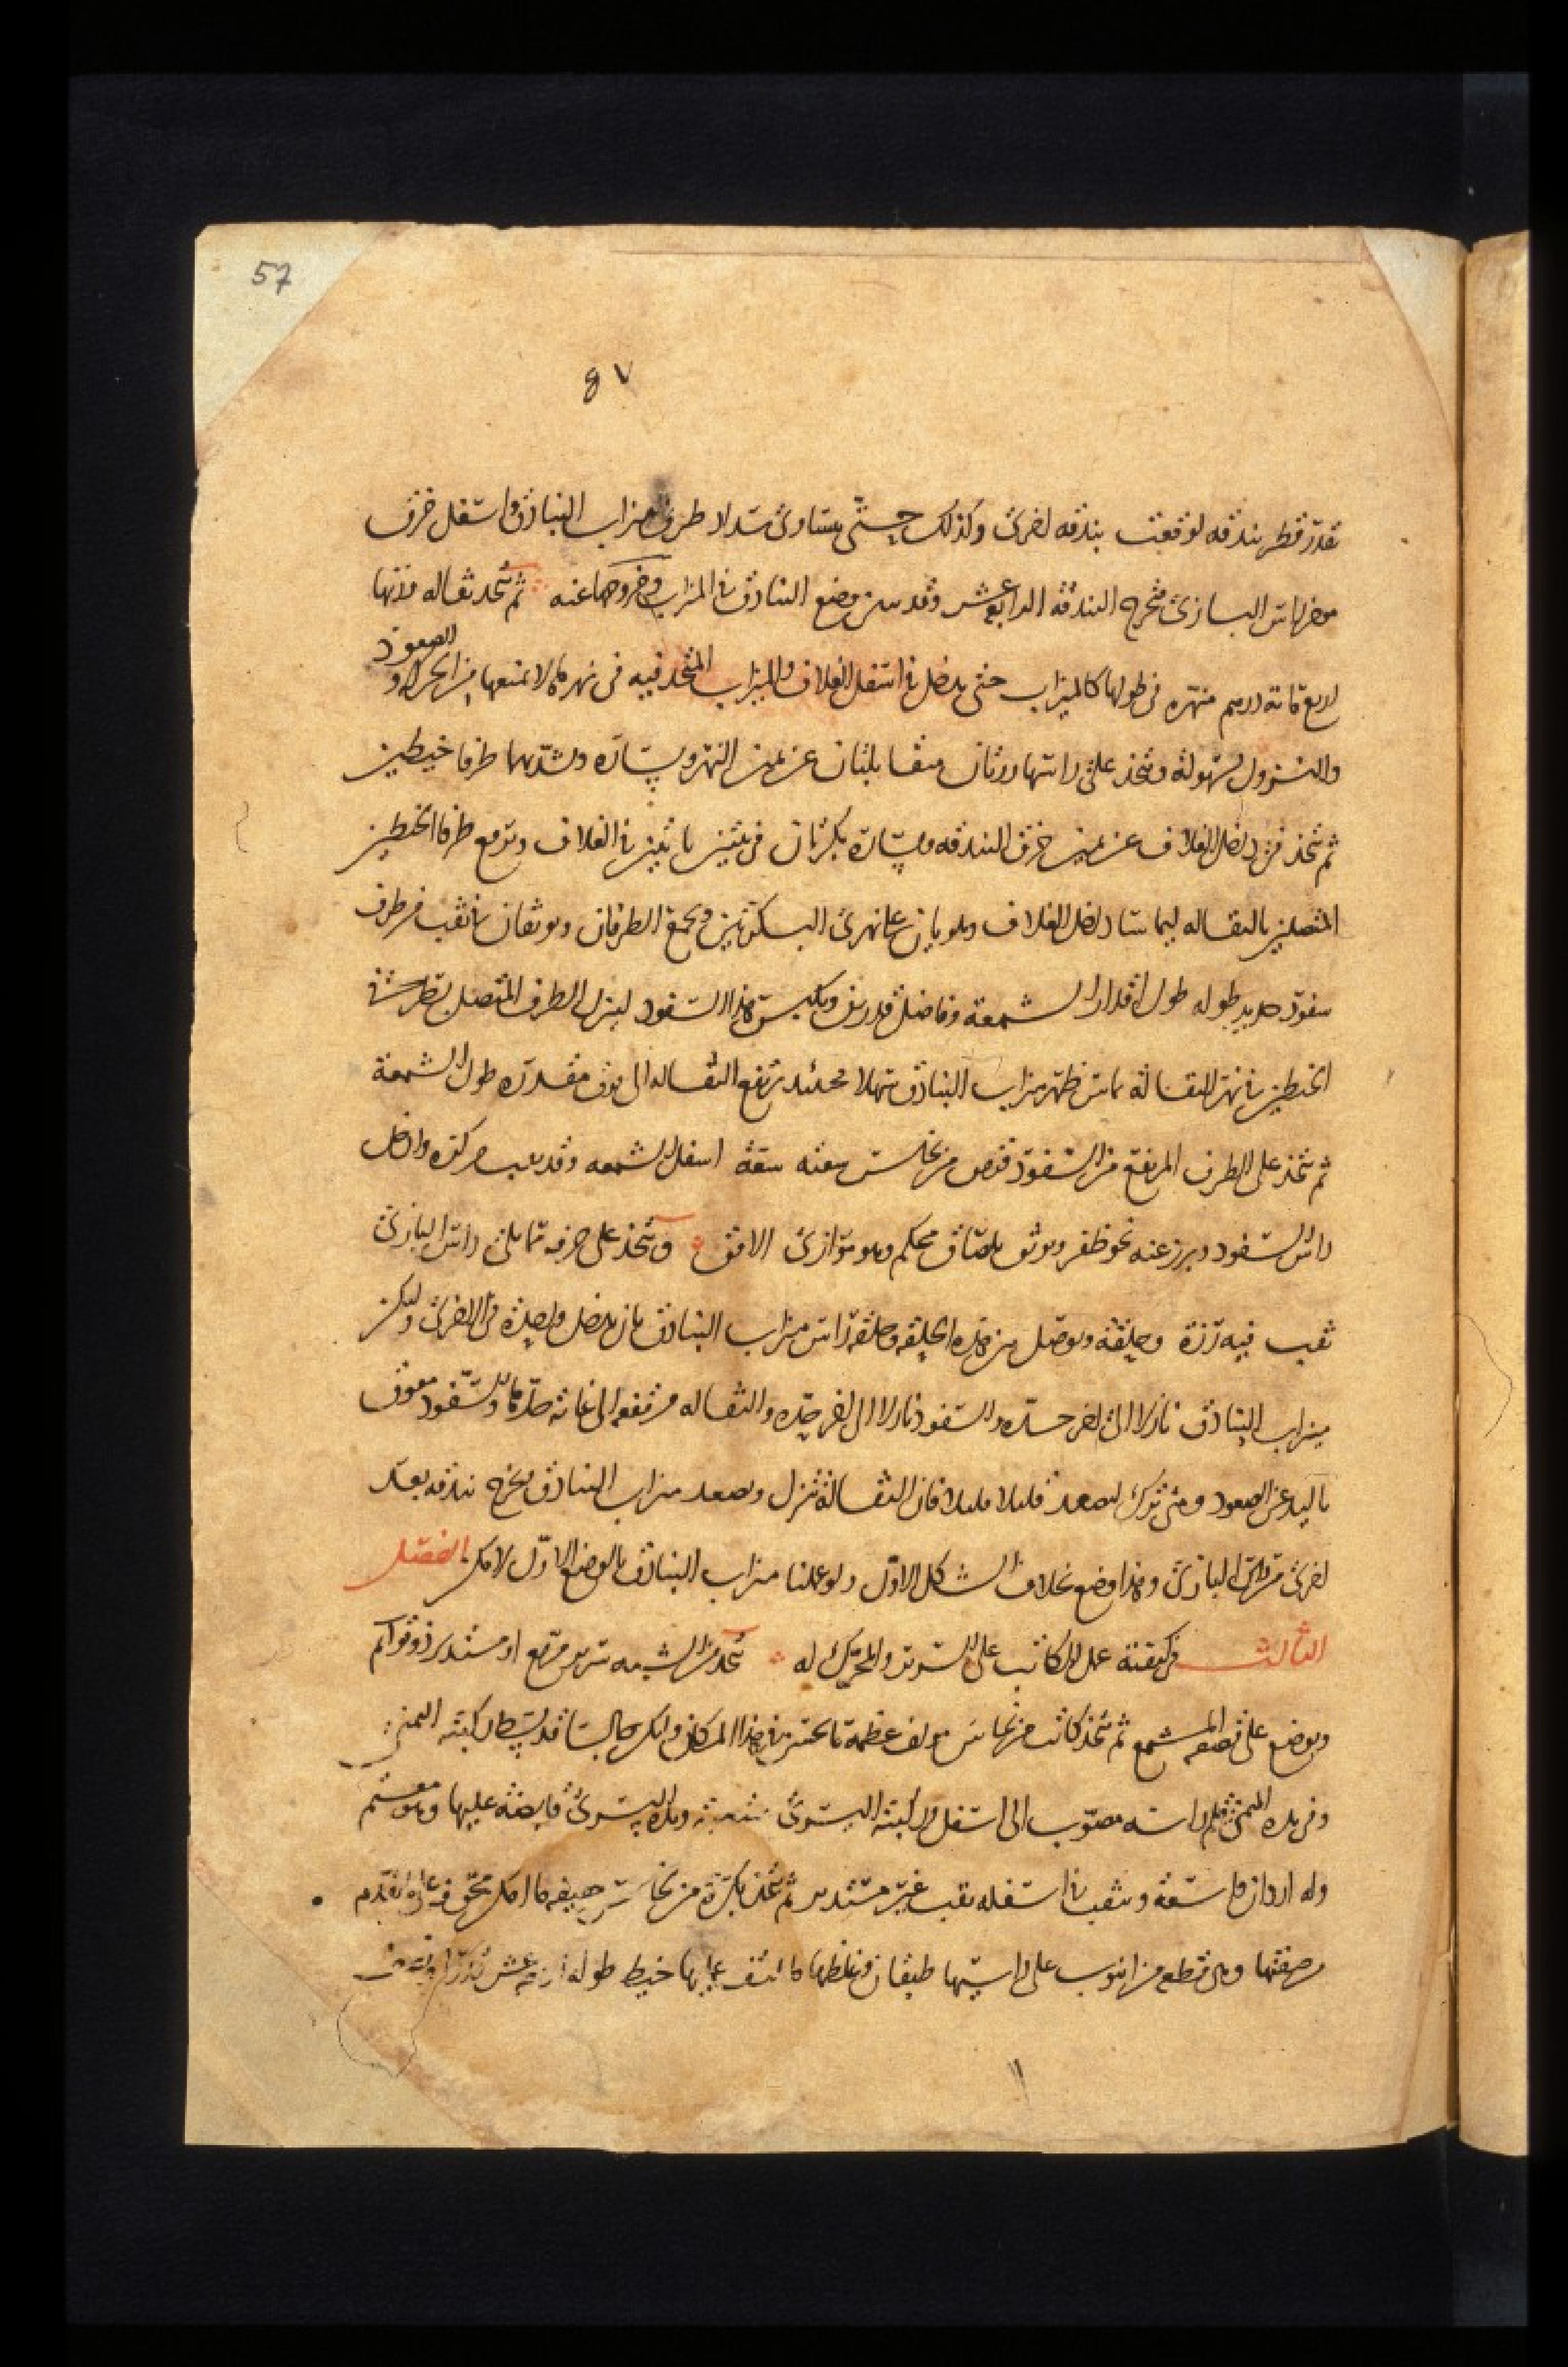 57
٥٧
بقدر قطر بندقه لوقفت بندقه اخرى وكذلك حتى يتساوى سدلا طرف ميزاب البنادق واسفل خرق
من راس البازى مخرج البندقه الرابع عشر وقد بين وضع البنادق فى الميزاب وخروجها عنه ثم يتخذ ثقاله وزنها
اربع مائة درهم منهره فى طولها كالميزاب حتى يدخل فى اسفل الغلاف والميزاب المتخذ فيه فى نهرها لا يمنعها من الحركة و الصعود
والنزول بسهولة ويتخذ على راسها رزتان متقابلتان عن يمين النهر ويساره ويشد بهما طرفا خيطين
ثم يتخذ فى داخل الغلاف عن يمين خرق البندقه ويساره بكرتان فى بيتين ثابتين فى الغلاف ويرفع طرفا الخيطين
المتصلين بالثقاله ليماسا داخل الغلاف ويلويان على نهرى البكرتين ويجمع الطرفان ويوثقان فى ثقب فى طرف
سفود حديد طوله طول اقدار الشمعة وفاضل قدر ويكبس هذا السفود لينزل الطرف المتصل بطرفى
الخيطين فى نهر الثقالة يماس ظهر ميزاب البنادق سهلا فحينئذ ترتفع الثقاله الى فوق مقداره طول الشمعة
ثم يتخذ على الطرف المرتفع من السفود قرص من نحاس سعته سعة اسفل الشمعه وقد ثقب مركزه وادخل
راس السفود وبرز عنه نحو ظفر ويوثق بلصاق محكم وهو موازى الافق ويتخذ على حرفه مما يلى راس البازى
ثقب فيه رزة وحلقة ويوصل بين هذه الحلقه وحلقة راس ميزاب البنادق بان يدخل واحدة فى الاخرى وليكن
ميزاب البنادق نازلا الى اخر حده والسفود نازلا الى اخر حده والثقاله مرتفعه الى غاية حدها والسفود معوق
باليد عن الصعود ومتى ترك ليصعد قليلا قليلا فان الثقالة تنزل ويصعد ميزاب البنادق يخرج بندقه بعد
اخرى من راس البازى وهذا وضع بخلاف الشكل الاول ولو عملنا ميزاب البنادق بالوضع الاول لامكن الفصل
الثالث فى كيفية عمل الكاتب على السرير والمحرك له يتخذ من الشبه سرير مربع او مستدير ذو قوائم
ويوضع على قصعه الشمع ثم يتخذ كاتب من نحاس مولف عظمه ما يحسن فى هذا المكان وليكن جالسا قد بسط ركبته اليمنى
وفى يده اليمنى قلم راسه مصوب الى اسفل وركبته اليسرى منتصبة ويده اليسرى قابضة عليها وهو معمم
وله اردان واسعة ويثقب فى اسفله ثقب غير مستدير ثم يتخذ بكرة من نحاس خفيفه ما امكن
صفتها وهى قطع من انبوب على راسيها طبقان وغلظها ما يلتف عليها خيط طوله اربعة عشر